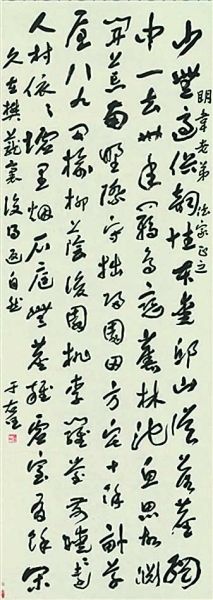 韋老弟 法家正之
少無適俗韻性本愛邱山誤落塵網
中一去卅年羈鳥戀舊林池魚思故淵
開荒南野際守拙歸園田方宅十餘畝草
屋八九間榆柳蔭後園桃李羅堂前曖々遠
人村依々墟里烟戶庭無塵雜虛室有餘閒
久在樊籠裏復得返自然
于右任